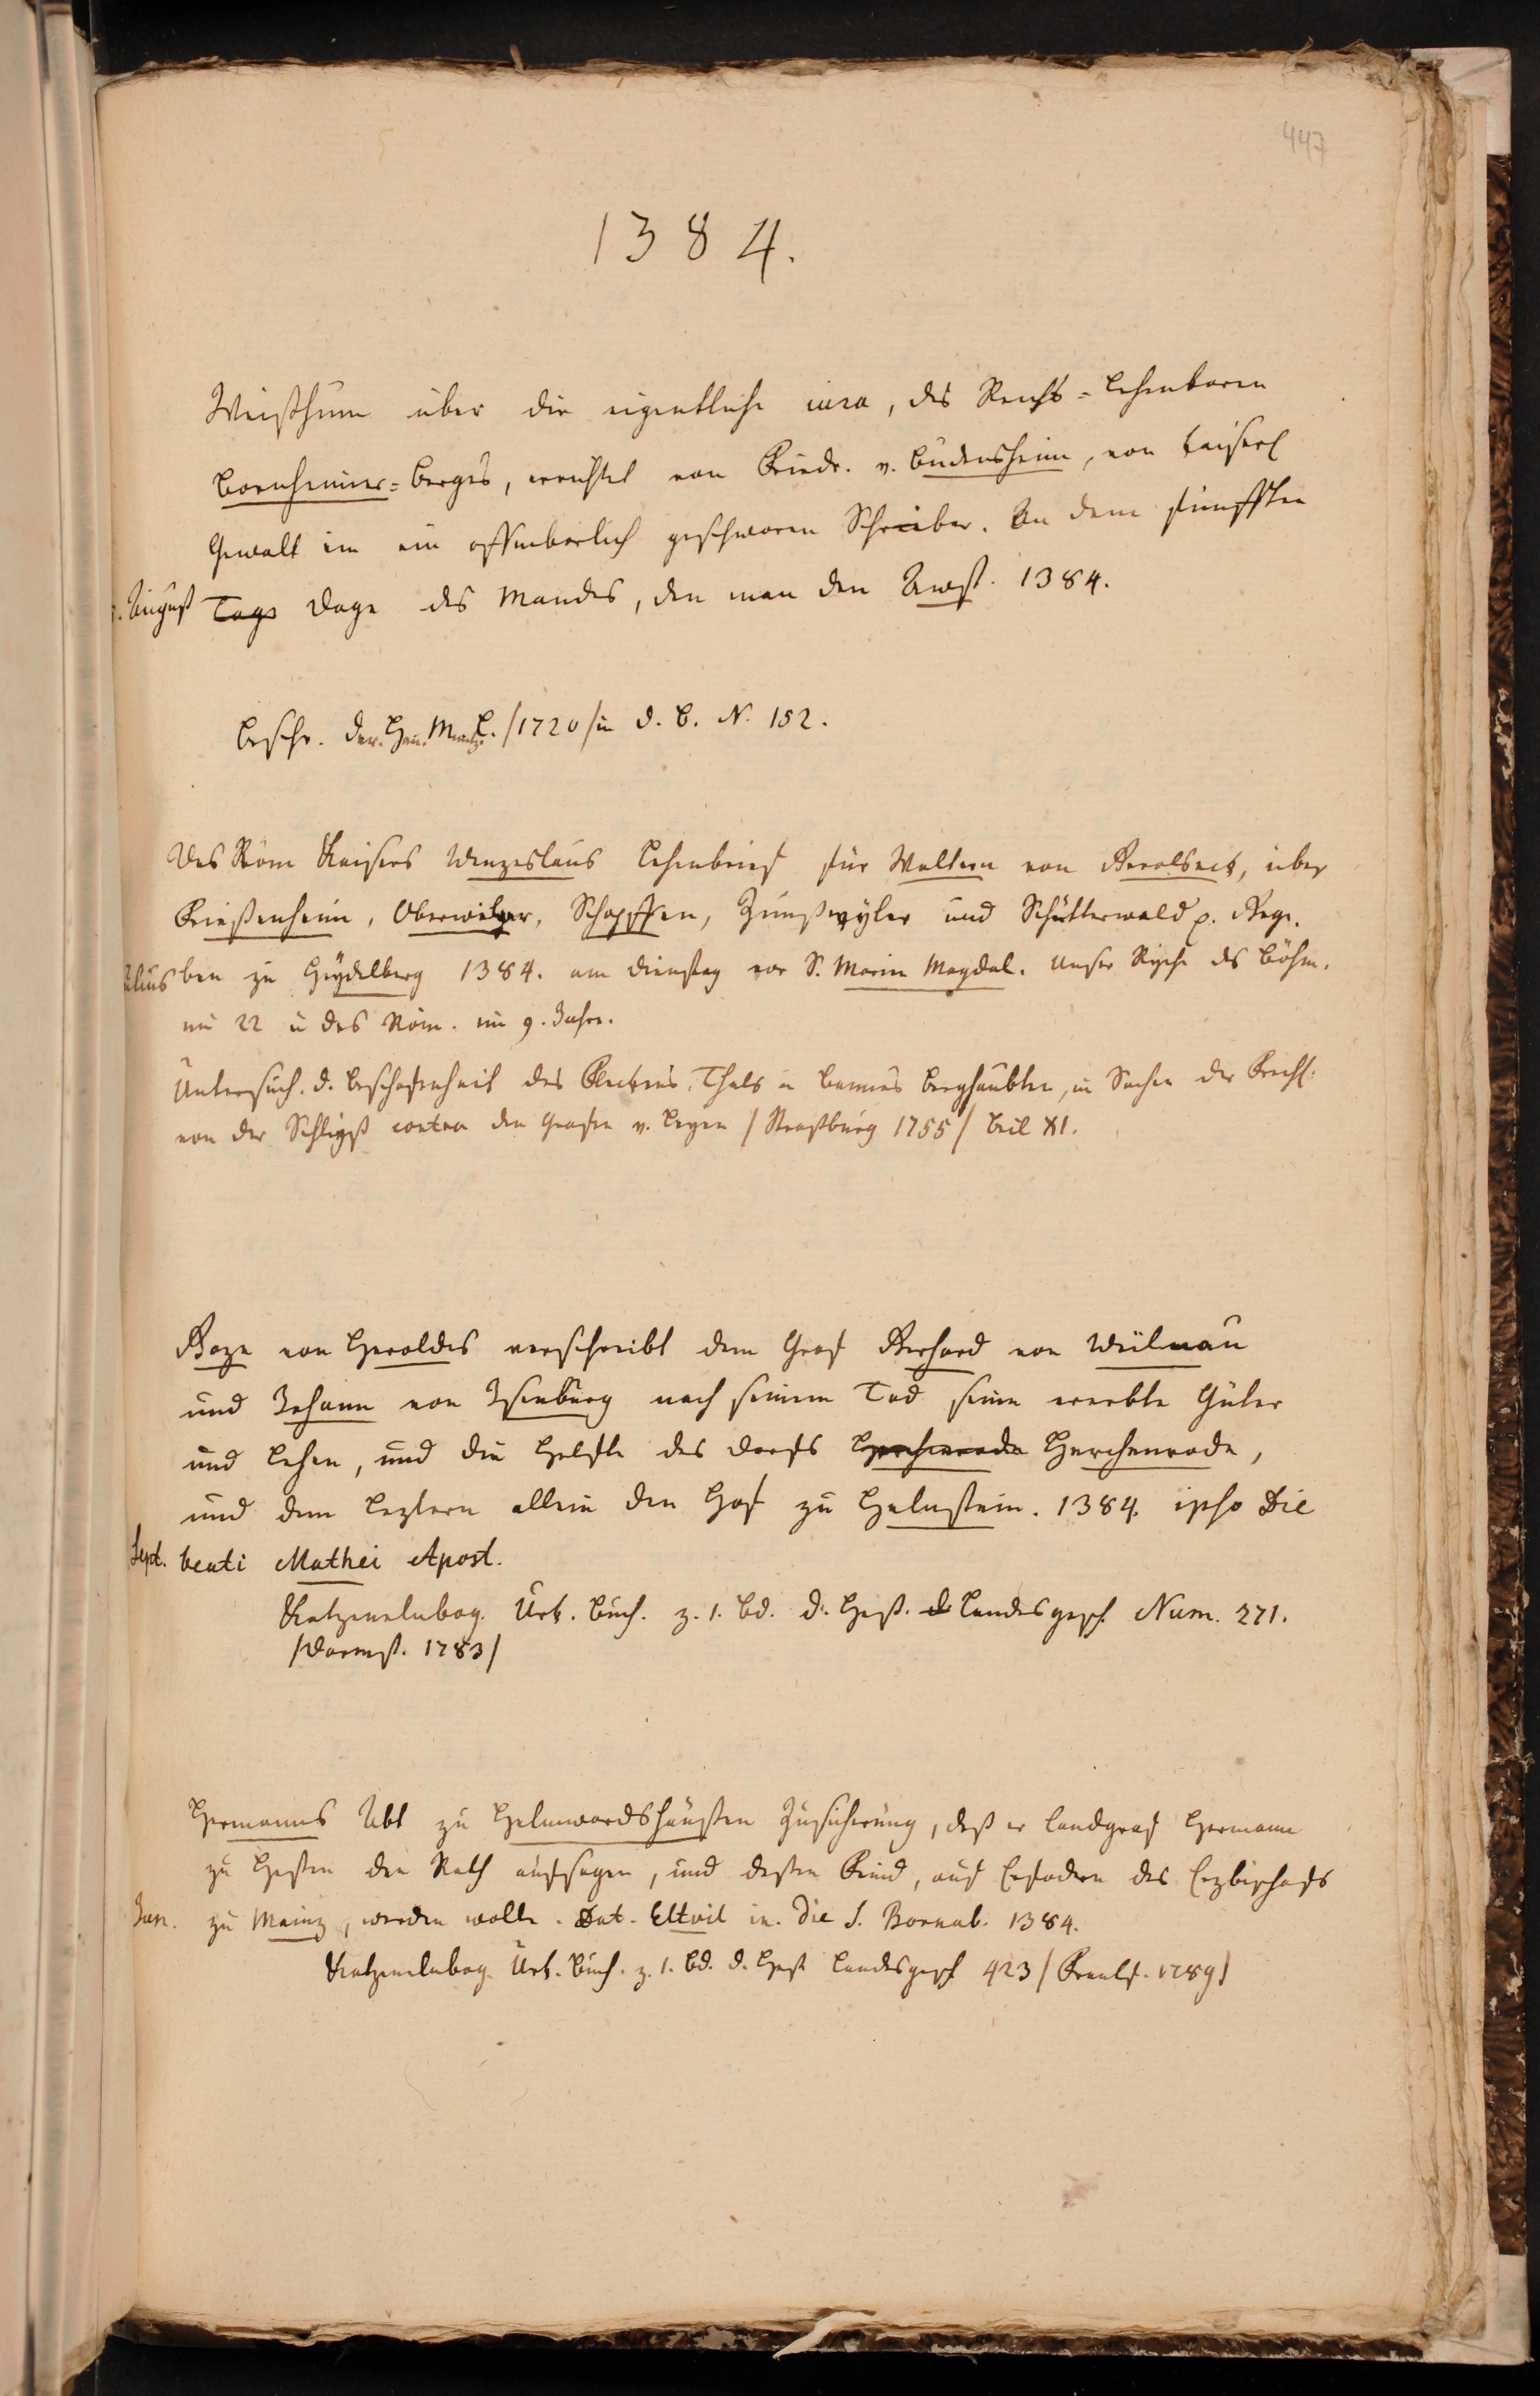 447
1384.
Weißthum über die eigentliche iura, des Reichs=Lehenbaren
Bornheimer=Berges, errichtet von Friedr. v. Büdensheim, von kaiserl
Gewalt im ein offenbarlich geschworen Schreiber. An dem fünfften
August Tags Dage des Mandes, den man den Augst. 1384.
Beschr. der. Han. Münz. /1720/ in d. B. N. 152.
Des Röm Kaisers Wenzeslaus Lehenbrief für Waltern von Geroldseck, über
Friesenheim, Oberwiler, Schopffen, Zunßwyler und Schutterwald p. Gege.
ben zu Heydelberg 1384. am Dienstag vor S. Marien Magdal. Unser Ryche des Böhm.
im 22 u des Röm. im 9. Jahre.
Untersuch. d. Beschaffenheit des Fleckens, Thals u Bannes Berghaubten, in Sachen der Freih:
von der Schleyß contra den Grafen v. Leyen /Straßburg 1755/ Beil XI.
Goze von Heroldes verschreibt dem Graf Gerhard von Wilnau
und Johann von Isenburg nach seinem Tod seine ererbte Güter
und Lehen, und die Helfte des Dorfs Herchenrode Herchenrode,
und dem leztern allein den Hof zu Helnstein. 1384. ipso Die
Sept. beati Mathei Apost.
Katzenelnbog. Urk. Buch. z. 1. Bd. d. Hess. d. Landesgesch Num. 271.
/Darmst. 1783/
Hermanns Abt zu Helmwardshaußen Zusicherung, daß er Landgraf Hermann
zu Hessen den Rath aufsagen, und dessen Feind, auf Erfodern des Erzbischofs
Jun. zu Mainz, werden wolle. Dat. Eltvil in. Die S. Barnab. 1384.
Katzenelnbog. Urk. Buch. z. 1. Bd. d. Hess Landesgesch 423 / Frankf. 1789/